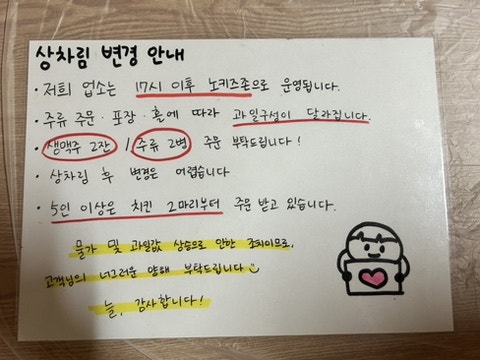 상차림 변경 안내
· 저희 업소는 17시 이후 노키즈존으로 운영됩니다.
· 주류 주문 · 포장 · 홀에 따라 과일구성이 달라집니다.
· 생맥주 2잔 / 주류 2병 주문 부탁드립니다!
· 상차림 후 변경은 어렵습니다
· 5인 이상은 치킨 2마리부터 주문 받고 있습니다.
물가 및 과일값 상승으로 인한 조치이므로,
고객님의 너그러운 양해 부탁드립니다
늘, 감사합니다!